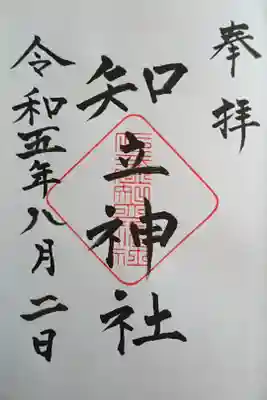 奉拝
知立神社
令和五年八月二日